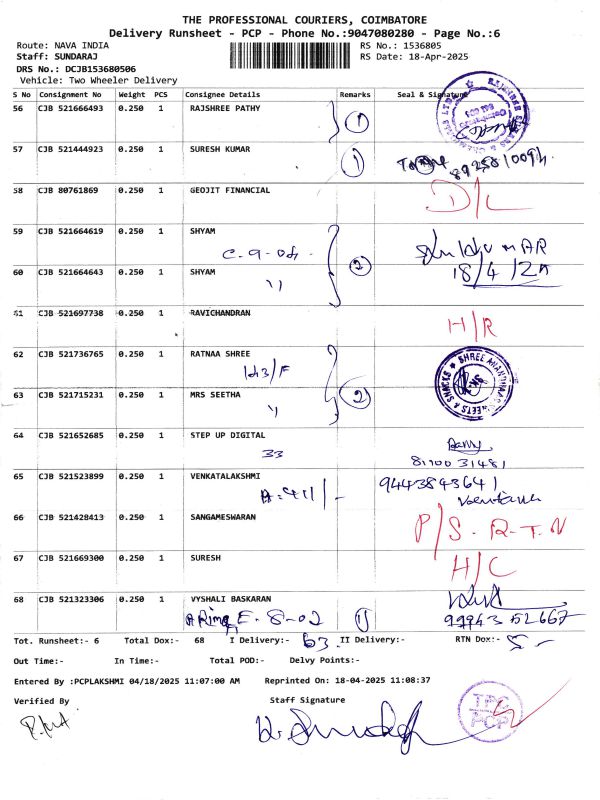 THE PROFESSIONAL COURIERS, COIMBATORE
Delivery Runsheet - PCP - Phone No.:9047080280 - Page No.:6
Route: NAVA INDIA RS No.: 1536805
Staff: SUNDARAJ RS Date: 18-Apr-2025
DRS No.: DCJB153680506
Vehicle: Two Wheeler Delivery
S No Consignment No Weight PCS Consignee Details Remarks Seal & Signature
56 CJB 521666493 0.250 1 RAJSHREE PATHY 1
57 CJB 521444923 0.250 1 SURESH KUMAR 1
58 CJB 80761869 0.250 1 GEOJIT FINANCIAL D/L
59 CJB 521664619 0.250 1 SHYAM
C-9-04 2 18/4/25
60 CJB 521664643 0.250 1 SHYAM
"
61 CJB 521697738 0.250 1 RAVICHANDRAN H/R
62 CJB 521736765 0.250 1 RATNAA SHREE SHREE ANANDHAAS SWEETS & SNACKS
2
63 CJB 521715231 0.250 1 MRS SEETHA
"
64 CJB 521652685 0.250 1 STEP UP DIGITAL
33 8110031481
65 CJB 521523899 0.250 1 VENKATALAKSHMI 9443843641
A-411/-
66 CJB 521428413 0.250 1 SANGAMESWARAN P/S. R-T-N
67 CJB 521669300 0.250 1 SURESH H/C
68 CJB 521323306 0.250 1 VYSHALI BASKARAN
E-8-02 1 99943 52667
Tot. Runsheet:- 6 Total Dox:- 68 I Delivery:- 63 II Delivery:- RTN Dox:- 5-
Out Time:- In Time:- Total POD:- Delvy Points:-
Entered By :PCPLAKSHMI 04/18/2025 11:07:00 AM Reprinted On: 18-04-2025 11:08:37
Verified By Staff Signature
TPC
PCP